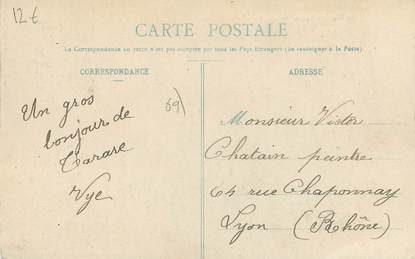 12€
CARTE POSTALE
La Correspondance au recto n'est pas acceptée par tous les Pays Étrangers (Se renseigner à la Poste)
CORRESPONDANCE
ADRESSE
Un gros
bonjour de
Tarare
Vye
69)
Monsieur Victor
Chatain peintre
64 rue Chaponnay
Lyon (Rhône)